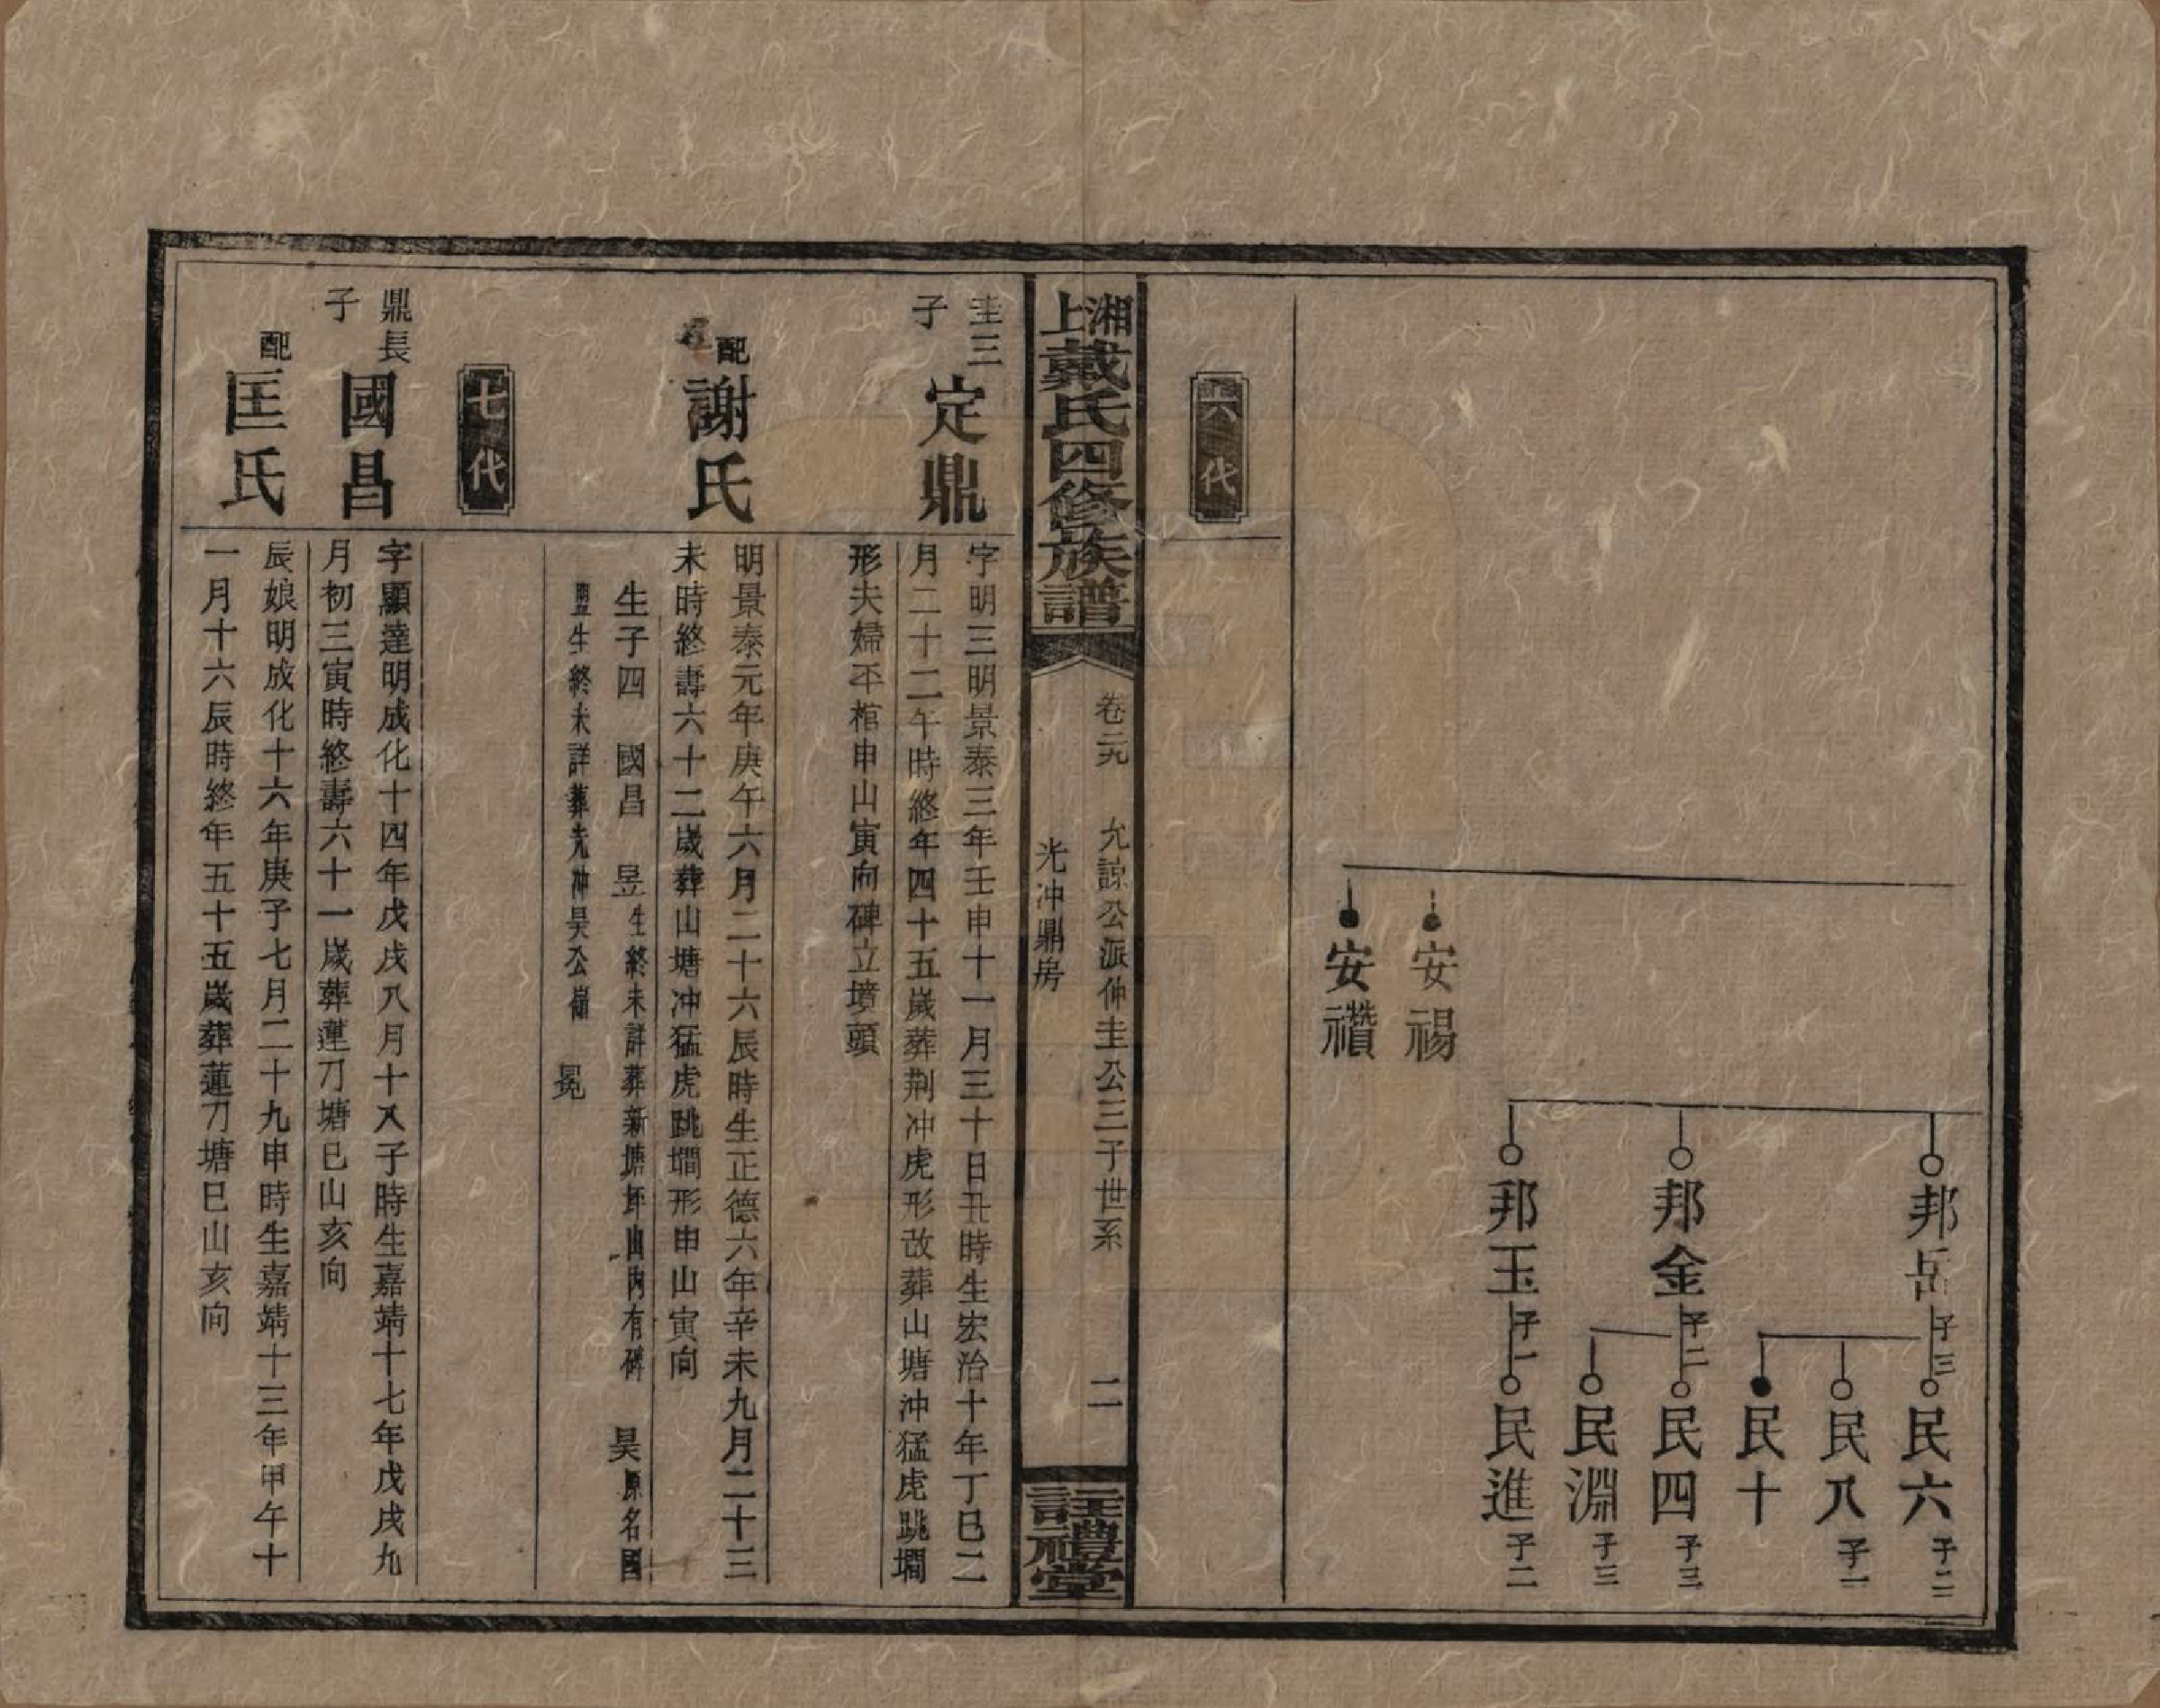 邦岳子三
民六子二
民八子一
民十
邦金子二
民四子三
民淵子三
邦玉子一
民進子二
安禓
安禶
六代
湘上戴氏四修族譜
卷二九　允諒公派仲圭公三子世系　二
光冲鼎房
註禮堂
圭三子
定鼎
字明三明景泰三年壬申十一月三十日丑時生宏治十年丁巳二
月二十二午時終年四十五歲葬荆冲虎形改葬山塘冲猛虎跳墹
形夫婦丕棺申山寅向碑立墳頭
配
謝氏
明景泰元年庚午六月二十六辰時生正德六年辛未九月二十三
未時終壽六十二歲葬山塘冲猛虎跳墹形申山寅向
生子四　國昌　昱生終未詳葬新塘坪山內有碑　昊原名國
盟生終未詳葬光冲昊公嶺　冕
七代
鼎長子
國昌
字顯達明成化十四年戊戌八月十八子時生嘉靖十七年戊戌九
月初三寅時終壽六十一歲葬蓮刀塘巳山亥向
配
匡氏
辰娘明成化十六年庚子七月二十九申時生嘉靖十三年甲午十
一月十六辰時終年五十五歲葬蓮刀塘巳山亥向